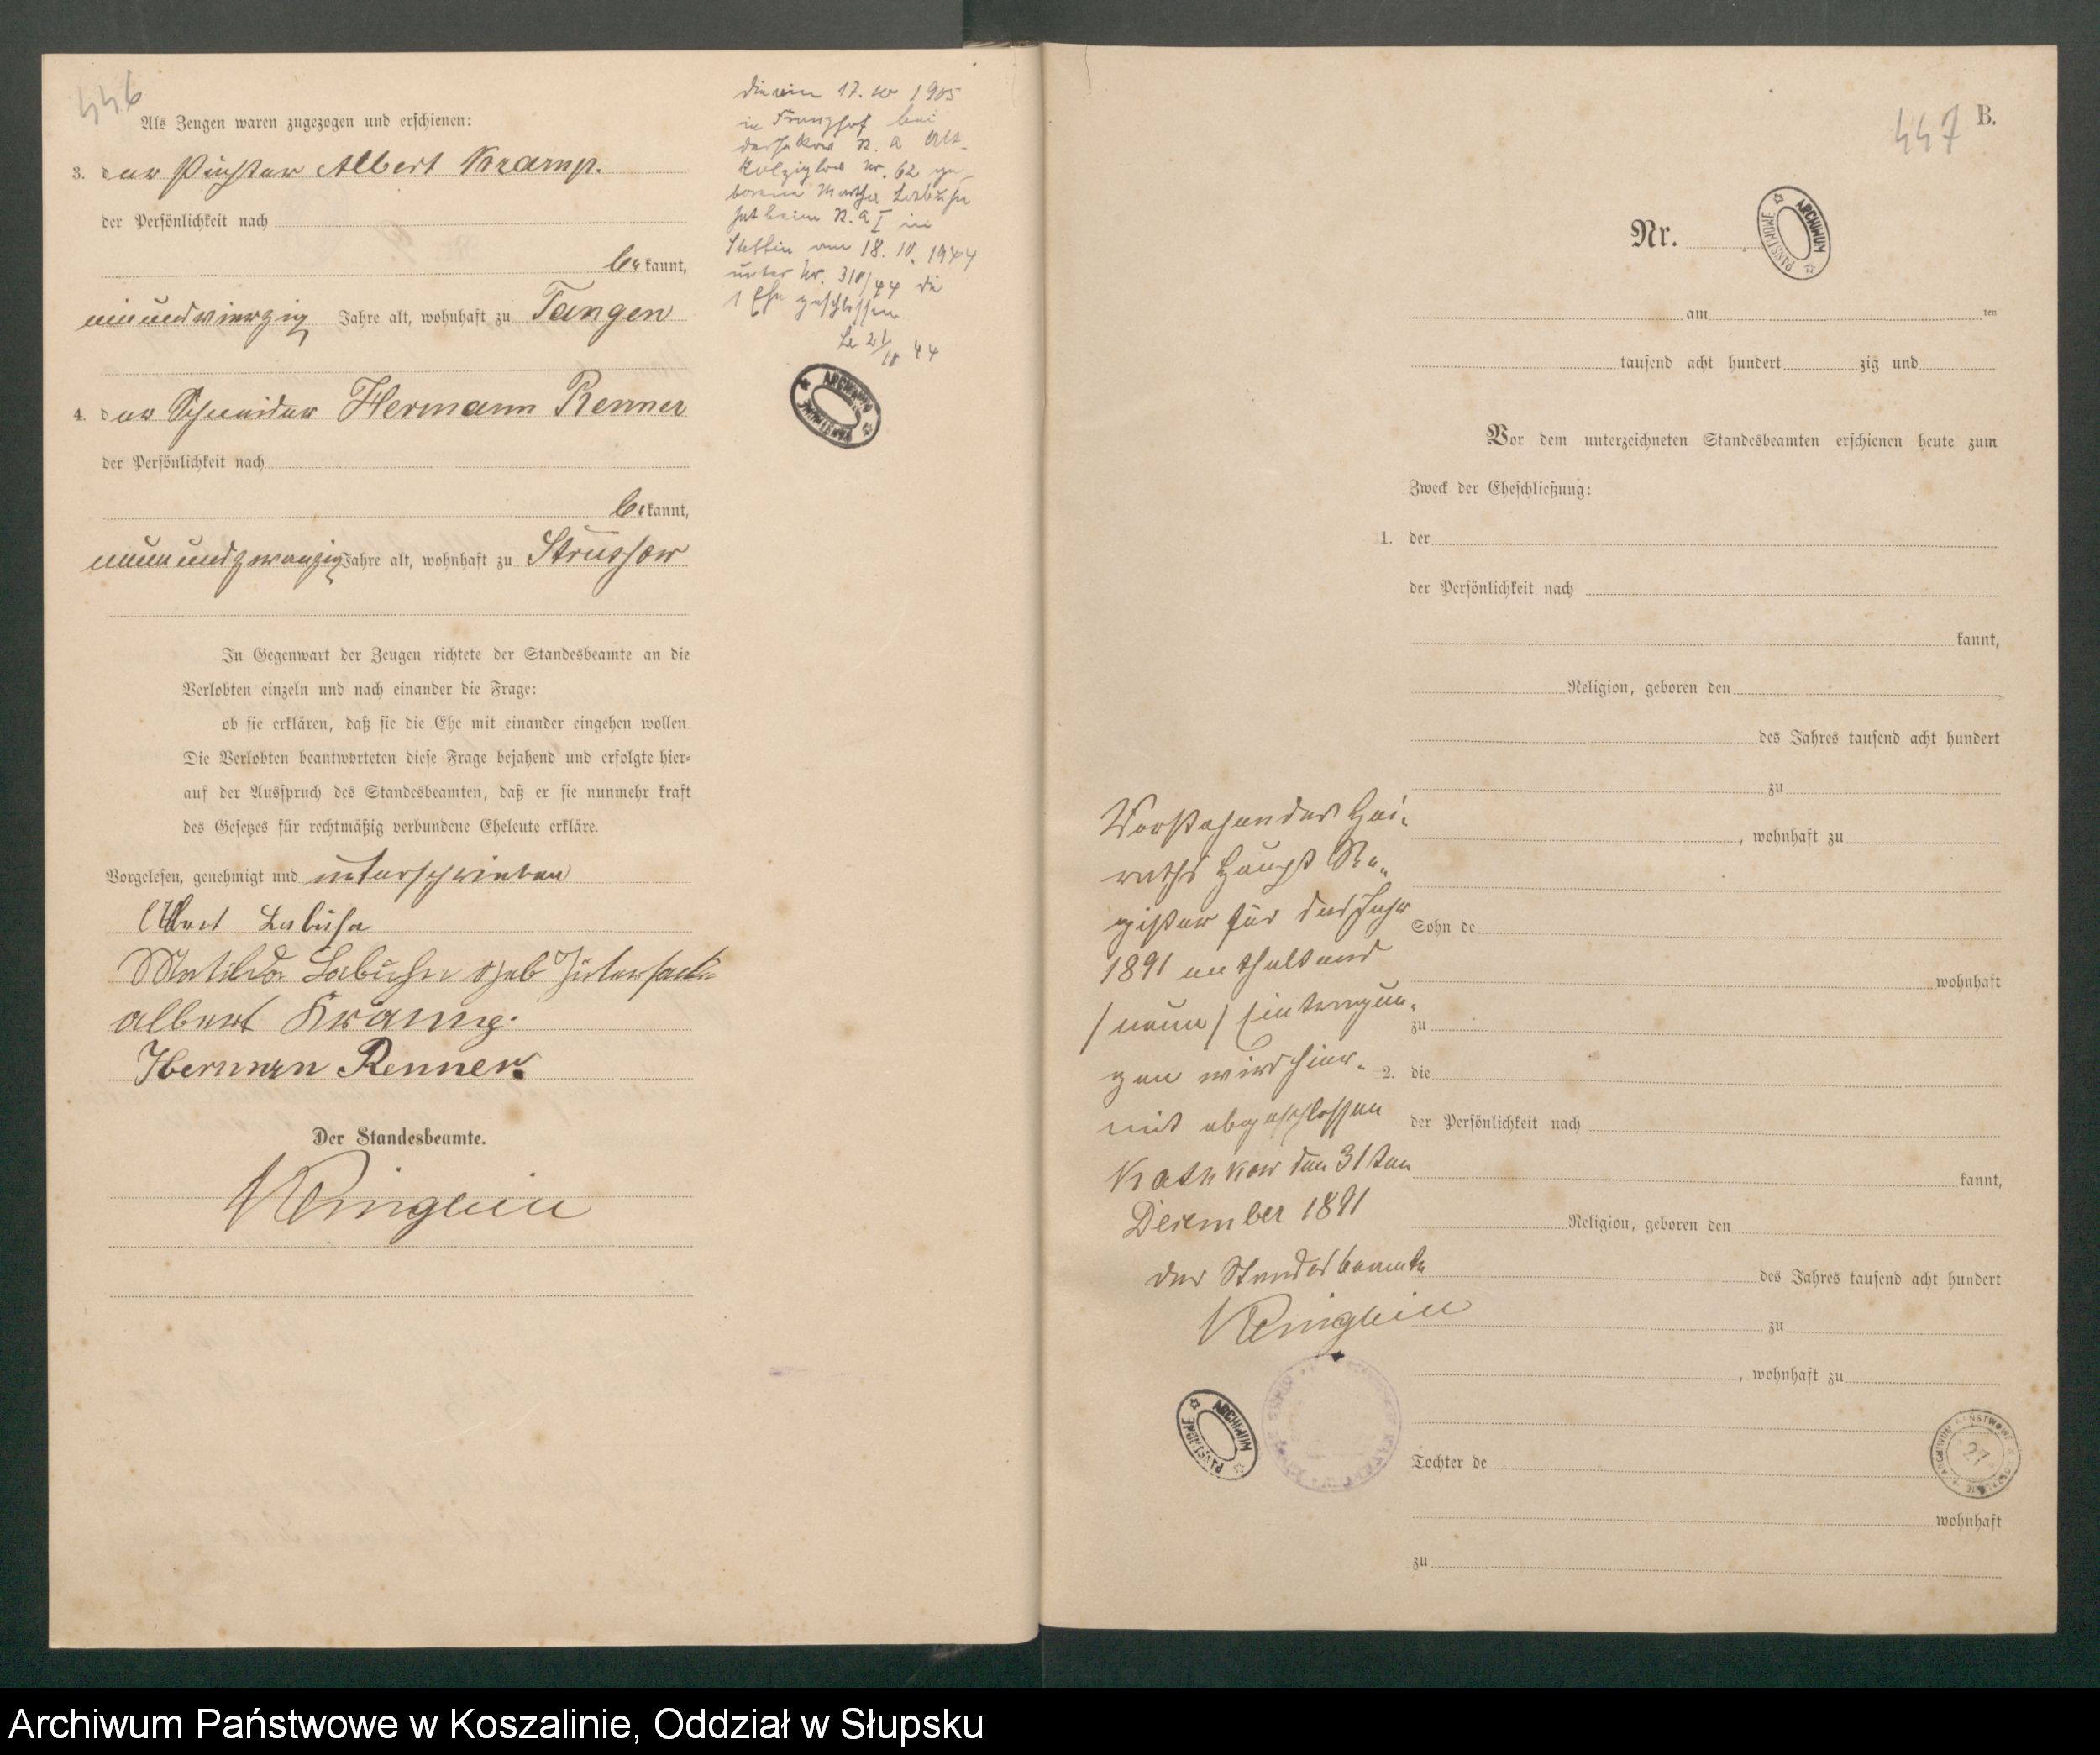 446
Als Zeugen waren zugezogen und erschienen:
3. der Albert Kramp.
der Persönlichkeit nach
bekannt,
einundvierzig Jahre alt, wohnhaft zu Tangen
4. der Schneider Hermann Renner
der Persönlichkeit nach
bekannt,
neunundzwanzig Jahre alt, wohnhaft zu Strussow
In Gegenwart der Zeugen richtete der Standesbeamte an die
Verlobten einzeln und nach einander die Frage:
ob sie erklären, daß sie die Ehe mit einander eingehen wollen.
Die Verlobten beantworteten diese Frage bejahend und erfolgte hier-
auf der Ausspruch des Standesbeamten, daß er sie nunmehr kraft
des Gesetzes für rechtmäßig verbundene Eheleute erkläre.
Vorgelesen, genehmigt und unterschrieben
Albert Labuhn
Labuhn geb
Albert
Herman Renner.
Der Standesbeamte.
17. 10 1905
in Franzhof bei
St. A Alt-
Kolziglow Nr. 62 ge-
borene Martha Labuhn
hat beim St. A I in
Stettin am 18. 10. 1944
unter Nr. 310/44 die
1 Ehe geschlossen
21/10 44
ARCHIWUM PAŃSTWOWE
447 B.
Nr.
ARCHIWUM PAŃSTWOWE
am ten
tausend acht hundert zig und
Vor dem unterzeichneten Standesbeamten erschienen heute zum
Zweck der Eheschließung:
1. der
der Persönlichkeit nach
kannt,
Religion, geboren den
des Jahres tausend acht hundert
zu
, wohnhaft zu
Sohn de
wohnhaft
zu
2. die
der Persönlichkeit nach
kannt,
Religion, geboren den
des Jahres tausend acht hundert
zu
, wohnhaft zu
Tochter de
wohnhaft
zu
Vorstehendes Hei-
raths Haupt Re-
gister für das Jahr
1891 enthaltend
(neun) Eintragun-
gen wird hier-
mit abgeschlossen
Kathkow den 31ten
Dezember 1891
Der Standesbeamte
ARCHIWUM PAŃSTWOWE
27
Archiwum Państwowe w Koszalinie, Oddział w Słupsku